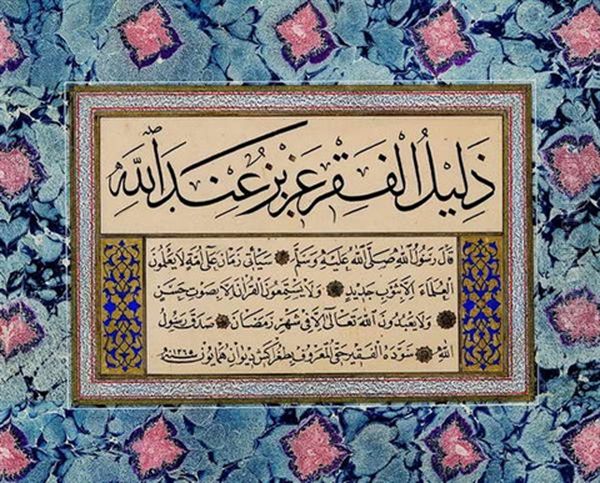 ذَلِيلُ الْفَقِرِ عَزِيزٌ عِنْدَ اللّٰهِ
قَالَ رَسُولُ اللّٰهِ صَلَّى اللّٰهُ عَلَيْهِ وَسَلَّمَ سَيَأْتِي زَمَانٌ عَلَى أُمَّةٍ لَا يَعْلَمُونَ
الْعُلَمَاءَ إِلَّا بِثَوْبٍ جَدِيدٍ وَلَا يَسْتَمِعُونَ الْقُرْآنَ إِلَّا بِصَوْتٍ حَسَنٍ
وَلَا يَعْبُدُونَ اللّٰهَ تَعَالَى إِلَّا فِي شَهْرِ رَمَضَانَ صَدَقَ رَسُولُ
اللّٰهِ سَوَّدَهُ الْفَقِيرُ حَقِّي الْمَعْرُوفُ بِطُغْرَاكَشِ دِيوَانِ هُمَايُونْ